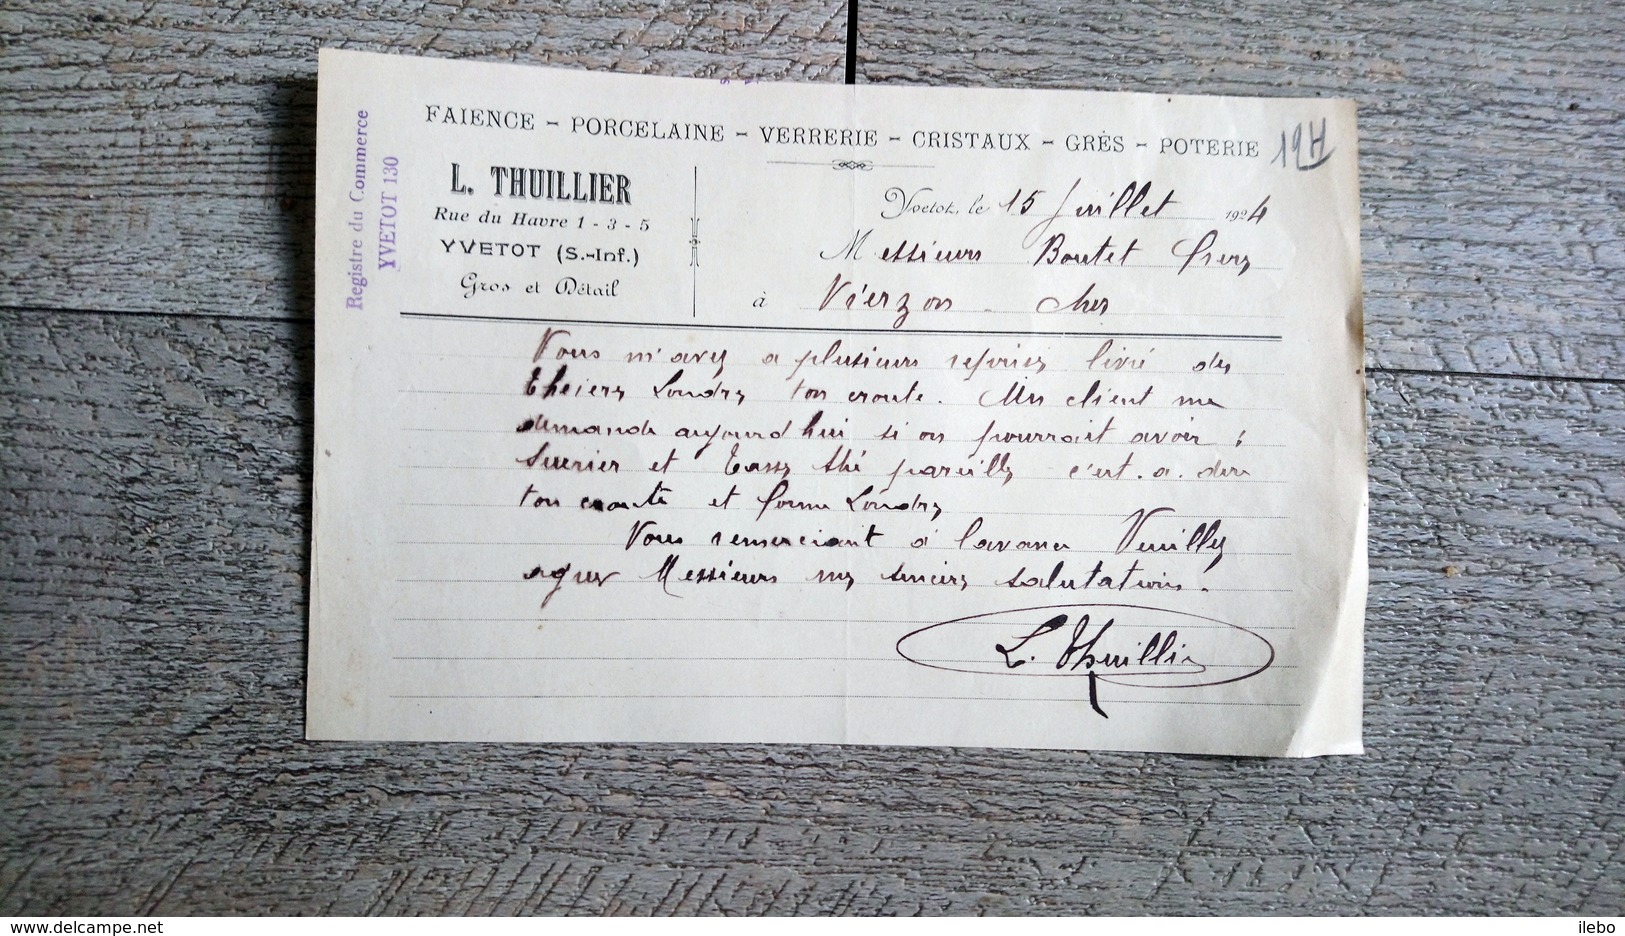 FAIENCE - PORCELAINE - VERRERIE - CRISTAUX - GRÈS - POTERIE
19H
Registre du Commerce
YVETOT 130
L. THUILLIER
Rue du Havre 1 - 3 - 5
YVETOT (S.-Inf.)
Gros et Détail
Yvetot, le 15 Juillet 1924
Messieurs Boutet Frères
à Vierzon - Cher
Vous m'avez a plusieurs reprises livré des
theiers Londres ton croute. Un client me
demande aujourdhui si on pourrait avoir :
Sucrier et Tasses thé pareilles c'est. a. dire
ton croute et forme Londres
Vous remerciant à l'avance Veuillez
agréer Messieurs mes sincères salutations.
L. Thuillier
ilebo